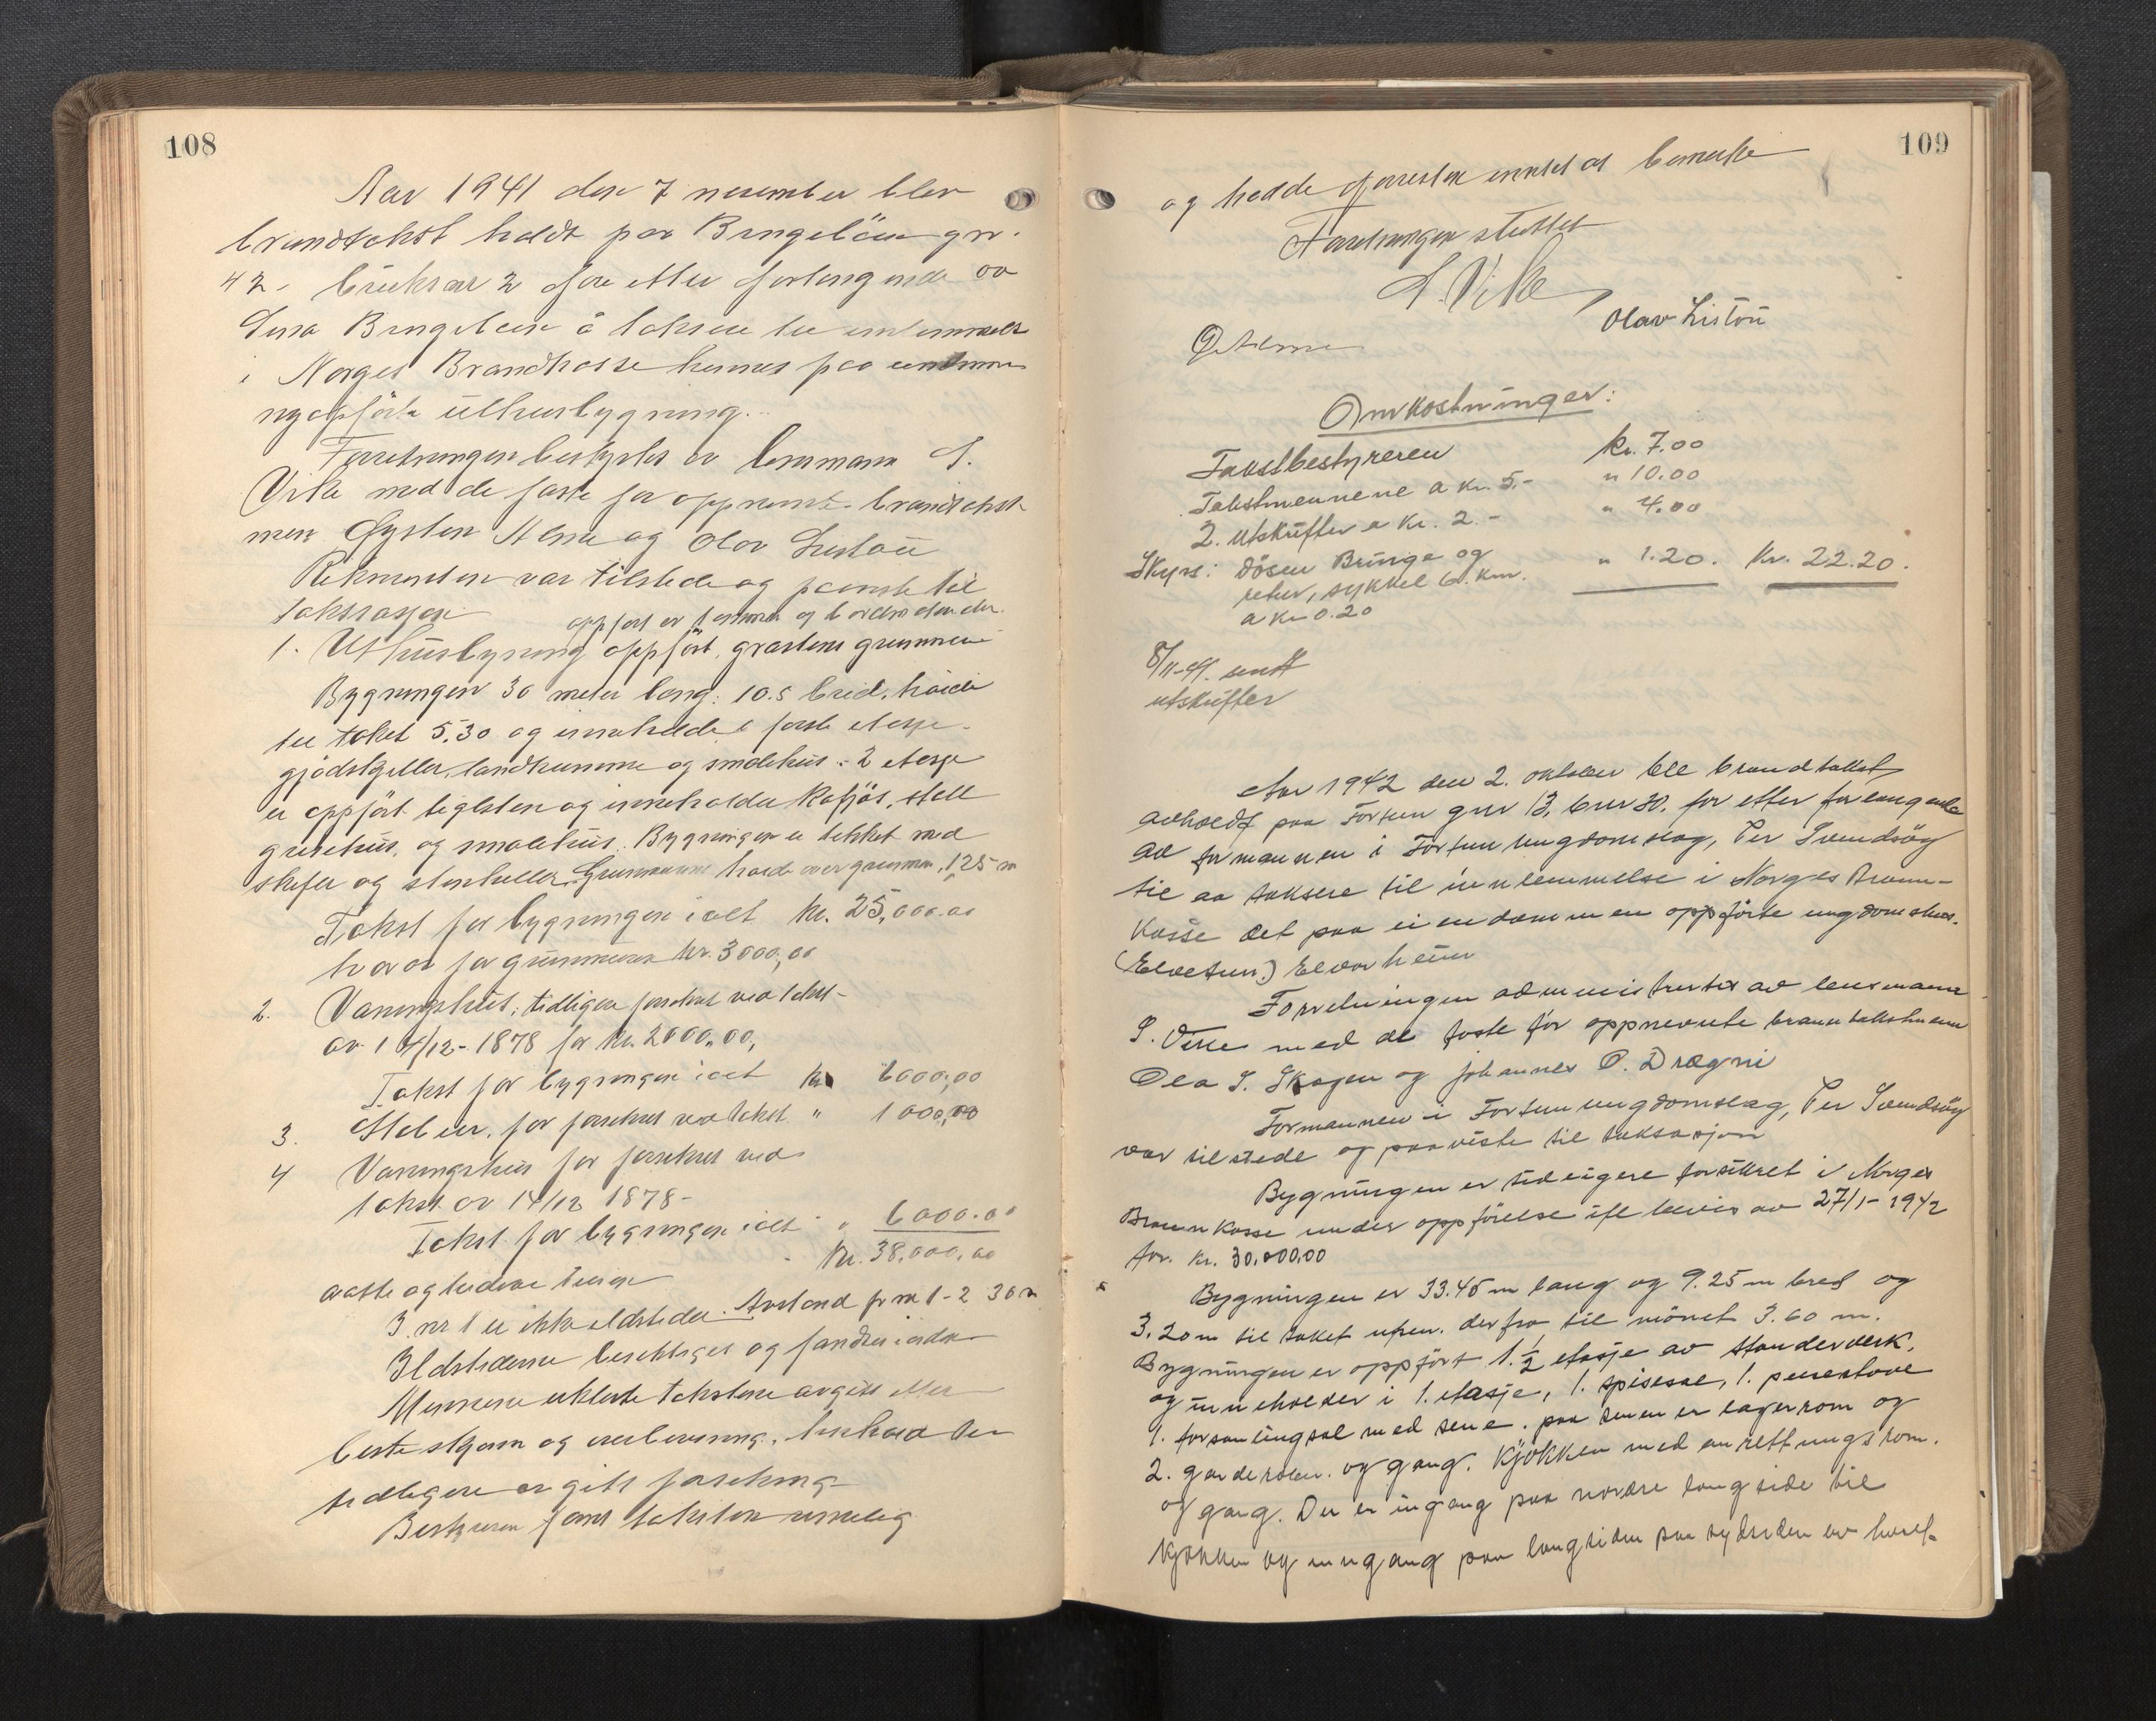 108
Aar 1941 den 7 november blev
brandtakst holdt paa Bringelöen gnr.
42. bruksnr 2 for etter forlangende av
Bringelöen å taksere til innlemmelse
i Norges Brandkasse hennes paa eiendommen
nyopförte uthusbygning.
Forretningen bestyrtes av lensmann S.
Vike med de faste for oppnevnte brandtakst
menn Øysten Alme og Olav Liston
Rekvirenten var tilstede og paaviste til
taksasjon
oppfört av tömmer og bordkledt
1. Uthusbygning oppfört, graastens grunnmur
Bygningen 30 meter lang: 10.5 bred, höide
til taket 5.30 og inneholder i förste etasje
gjödselkjeller, landkumme og smalehus. 2 etasje
er oppfört teglsten og inneholder kufjös, stall
grisehus, og smalehus. Bygningen er tekket med
skifer og stenheller. Grunnmurens höide over grunnen, 1,25 m
Takst for bygningen ialt kr. 25,000.00
hvorav for grunnmuren kr. 3000,00
2. Vaaningshus, tidligere forsikret ved takst
av 14/12-1878 for kr. 2000,00,
Takst for bygningen ialt kr. 6000,00
3. Stabur, för forsikret ved takst " 1000,00
4 Vaaningshus för forsikret ved
takst av 14/12 1878-
Takst for bygningen ialt " 6000.00
kr. 38,000,00
3. nr 1 er ikke ildsteder. Avstand fra nr 1-2 30 m
Ildstederne besiktiges og fandtes i orden
Mennene erklærte taksten avgitt etter
beste skjönn og overbevisning,
tidligere avgitt forsikring
Bestyreren fant taksten rimelig
109
og hadde forresten intet at bemerke
Forretningen sluttet
S. Vike
Olav Liston
Ø. Alme
Omkostninger:
Takstbestyreren kr. 7.00
Takstmennene a kr. 5.- " 10.00
2. utskrifter a kr. 2.- " 4.00
Skyss: Dösen Bringe og " 1.20. Kr. 22.20.
retur, sykkel 6. km.
a kr 0.20
8/11-41. sendt
utskrifter
Aar 1942 den 2. oktober ble brandtakst
avholdt paa Fortun gnr 13, bnr 30. for etter forlangende
av formannen i Fortun ungdomslag, Per Svendsöy
til aa taksere til innlemmelse i Norges Brann-
kasse det paa eiendommen oppförte ungdomshus.
(Elvetun.) Elvarheim
Forretningen administrertes av lensmann
S. Vike med de faste för oppnevnte branntakstmenn
Ola S. Skagen og Johannes O. Drægni
Formannen i Fortun ungdomslag, Per Svendsöy
var tilstede og paaviste til taksasjon
Bygningen er tidligere forsikret i Norges
Brannkasse under oppförelse ifl bevis av 27/1-1942
for. kr. 30,000,00
Bygningen er 33.45 m lang og 9.25 m bred og
3.20 m til taket utven. derfra til mönet 3.60 m.
Bygningen er oppfört 1. 1/2 etasje av standerverk,
og inneholder i 1. etasje, 1. spisesal, 1. peisestove
1. forsamlingsal med sene. paa senen er lagerrom og
2. garderober. og gang. Kjökken med anrettningsrom.
og gang. Der er ingang paa nordre langside til
kjökken og inngang paa langsiden paa sydsiden av huset.